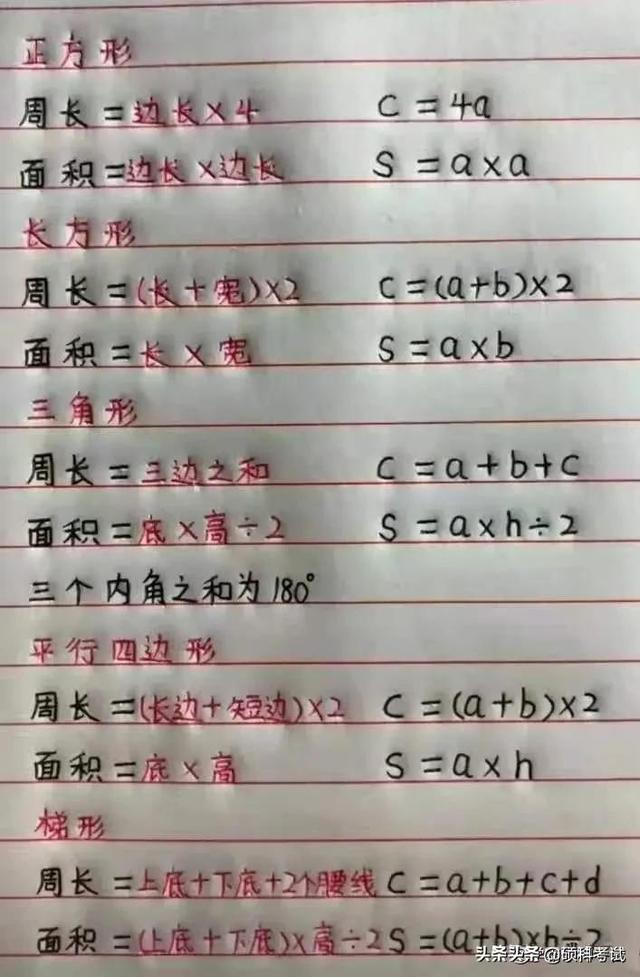 正方形
周长=边长×4 C=4a
面积=边长×边长 S=a×a
长方形
周长=(长+宽)×2 C=(a+b)×2
面积=长×宽 S=a×b
三角形
周长=三边之和 C=a+b+c
面积=底×高÷2 S=a×h÷2
三个内角之和为180°
平行四边形
周长=(长边+短边)×2 C=(a+b)×2
面积=底×高 S=a×h
梯形
周长=上底+下底+2个腰线 C=a+b+c+d
面积=(上底+下底)×高÷2 S=(a+b)×h÷2
头条 @硕科考试